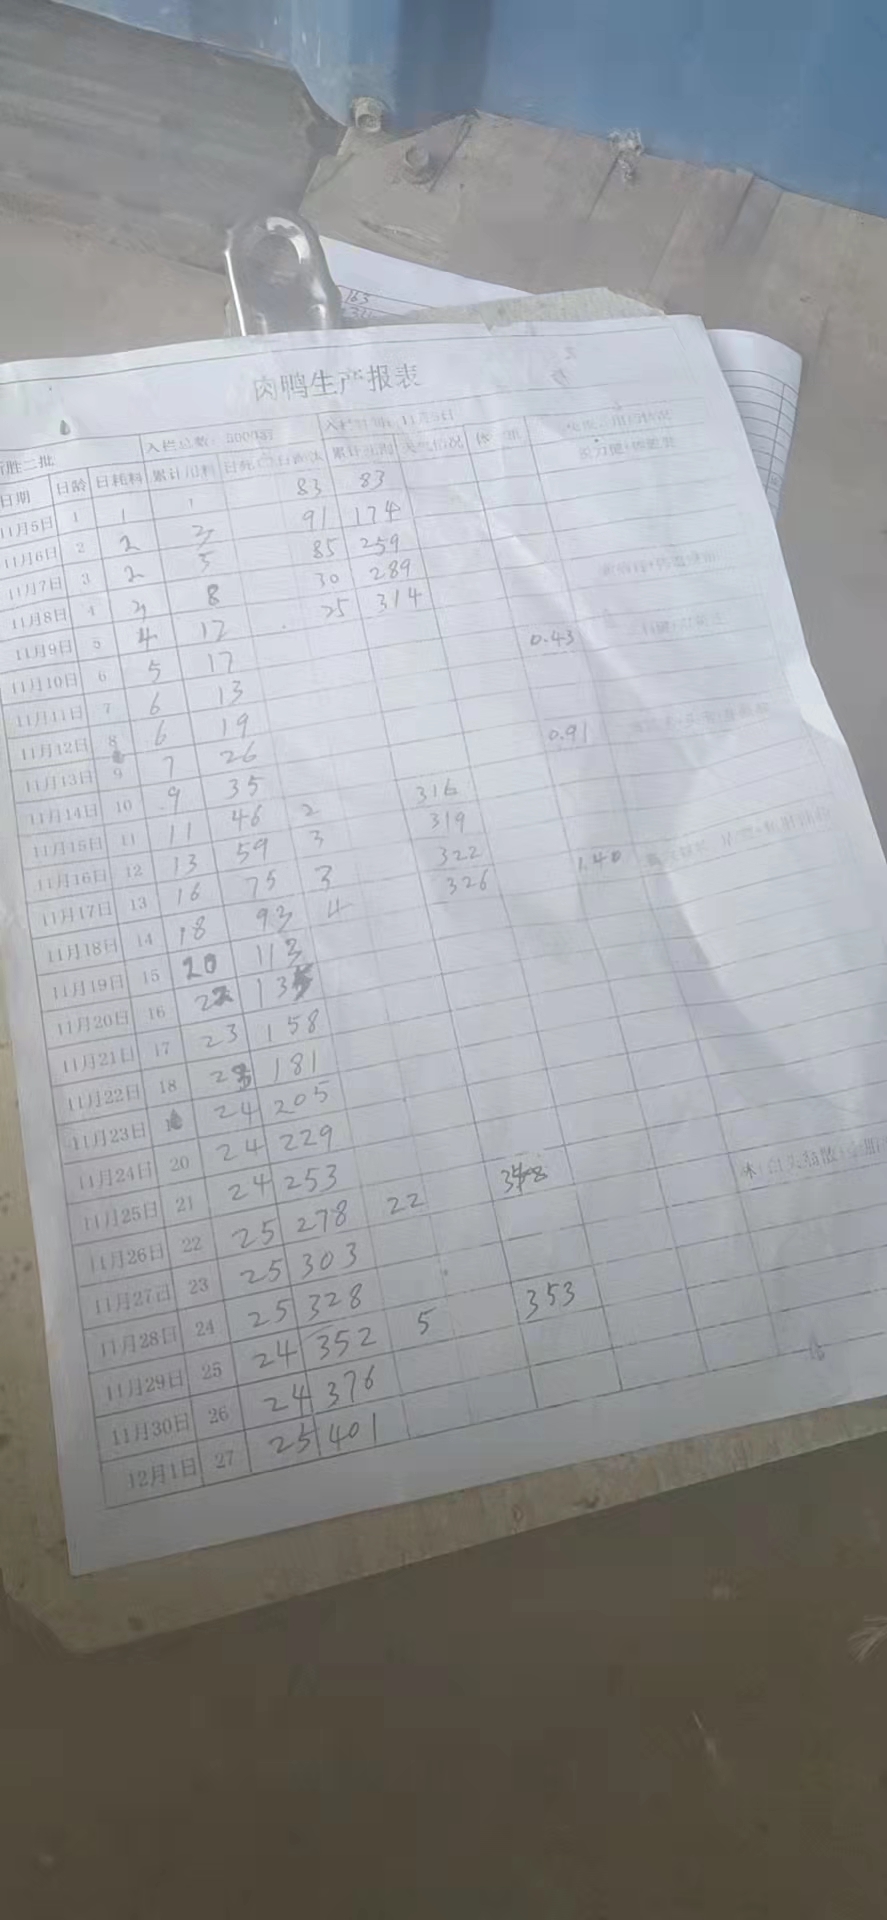 163
肉鸭生产报表
胜二批 入栏总数: 5000只 入栏时间: 11月5日
日期 日龄 日耗料 累计用料 累计死淘 天气情况
11月5日 1 1 1 83 83
11月6日 2 2 3 91 174
11月7日 3 2 5 85 259
11月8日 4 3 8 30 289
11月9日 5 4 12 25 314
11月10日 6 5 17
11月11日 7 6 13 0.43
11月12日 8 6 19
11月13日 9 7 26
11月14日 10 9 35 0.91
11月15日 11 11 46 2 316
11月16日 12 13 59 3 319
11月17日 13 16 75 3 322
11月18日 14 18 93 4 326 1.40
11月19日 15 20 113
11月20日 16 22 135
11月21日 17 23 158
11月22日 18 23 181
11月23日 24 205
11月24日 20 24 229
11月25日 21 24 253
11月26日 22 25 278 22 348
11月27日 23 25 303
11月28日 24 25 328
11月29日 25 24 352 5 353
11月30日 26 24 376
12月1日 27 25 401